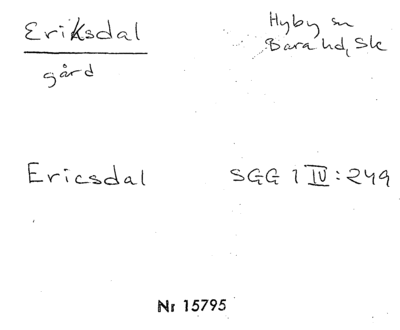 Eriksdal
Hyby sn
Bara hd, Sk
gård
Ericsdal
SGG 1 IV: 249
Nr 15795